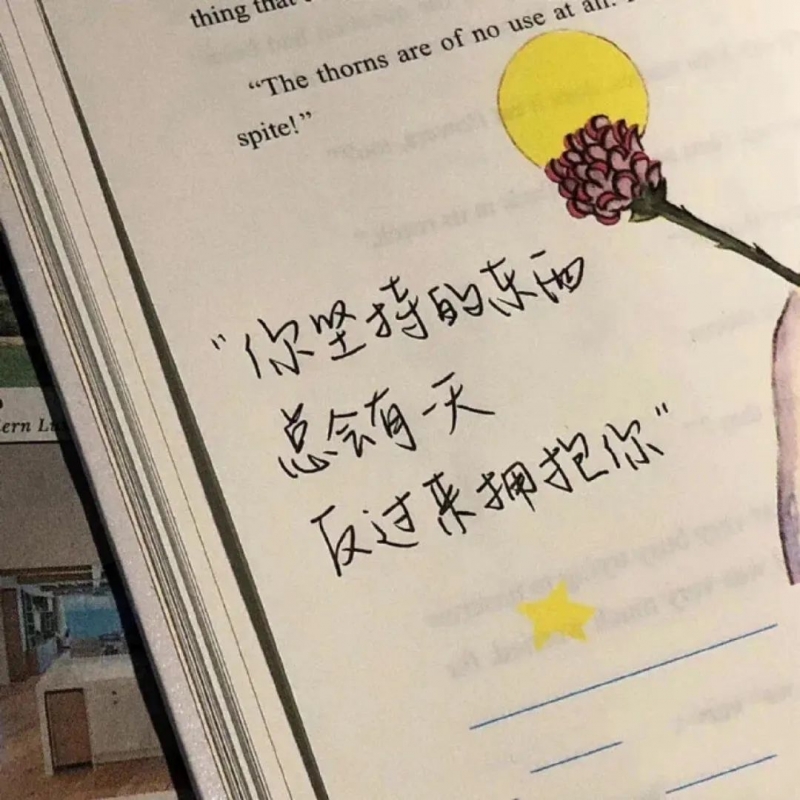 thing that
“The thorns are of no use at all.
spite!”
“你坚持的东西
总会有一天
反过来拥抱你”
ern